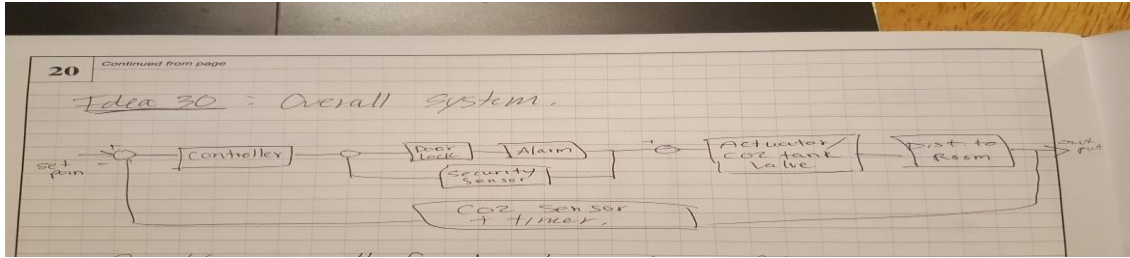 20
Continued from page
Idea 30 : Overall system.
set
poin
+
-
Controller
Door
Lock
Alarm
Security
Sensor
+
Actuator/
CO2 tank
Valve
Dist. to
Room
out
put
CO2 Sensor
+ timer.